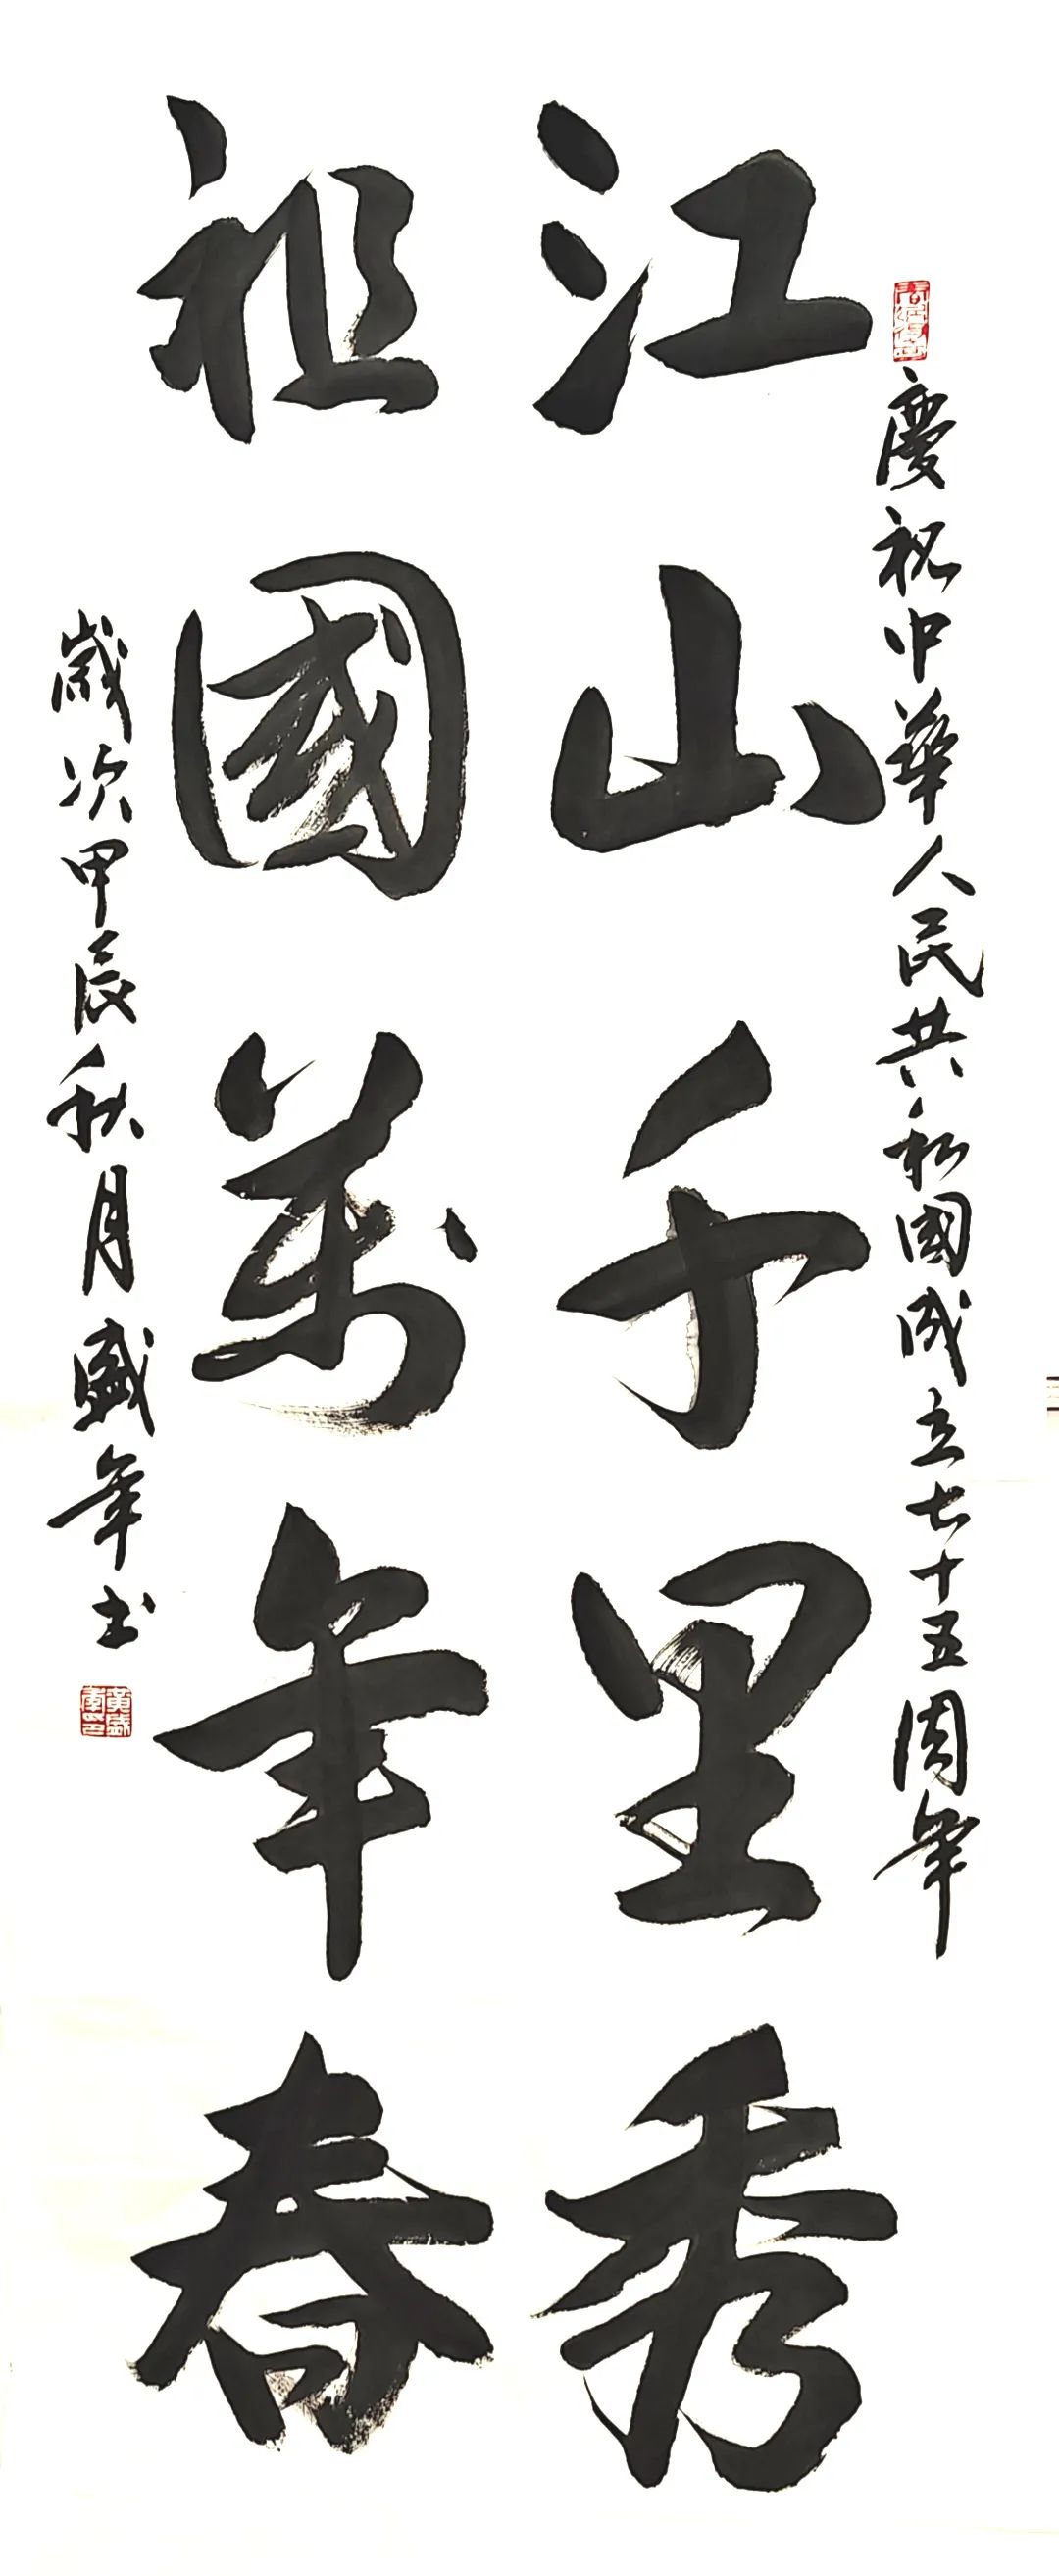 慶祝中華人民共和國成立七十五周年
江山千里秀
祖國萬年春
歲次甲辰秋月盛年书
黃盛年印